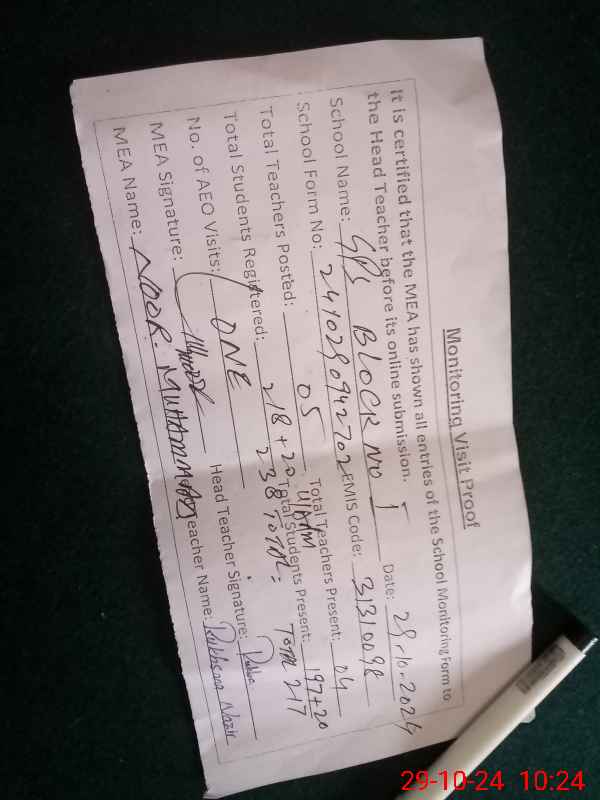 Monitoring Visit Proof
It is certified that the MEA has shown all entries of the School Monitoring Form to
the Head Teacher before its online submission.
School Name: GPS BLOCK NO 1 Date: 29-10-2024
School Form No: 241029094270 EMIS Code: 31310098
Total Teachers Posted: 05 Total Teachers Present: 04
Total Students Registered: 218+20 Total Students Present: 197+20
238 TOTAL: TOTAL 217
No. of AEO Visits: ONE
MEA Signature: Head Teacher Signature:
MEA Name: NOOR MUHAMMAD eacher Name: Rukhsana Nazir
29-10-24 10:24